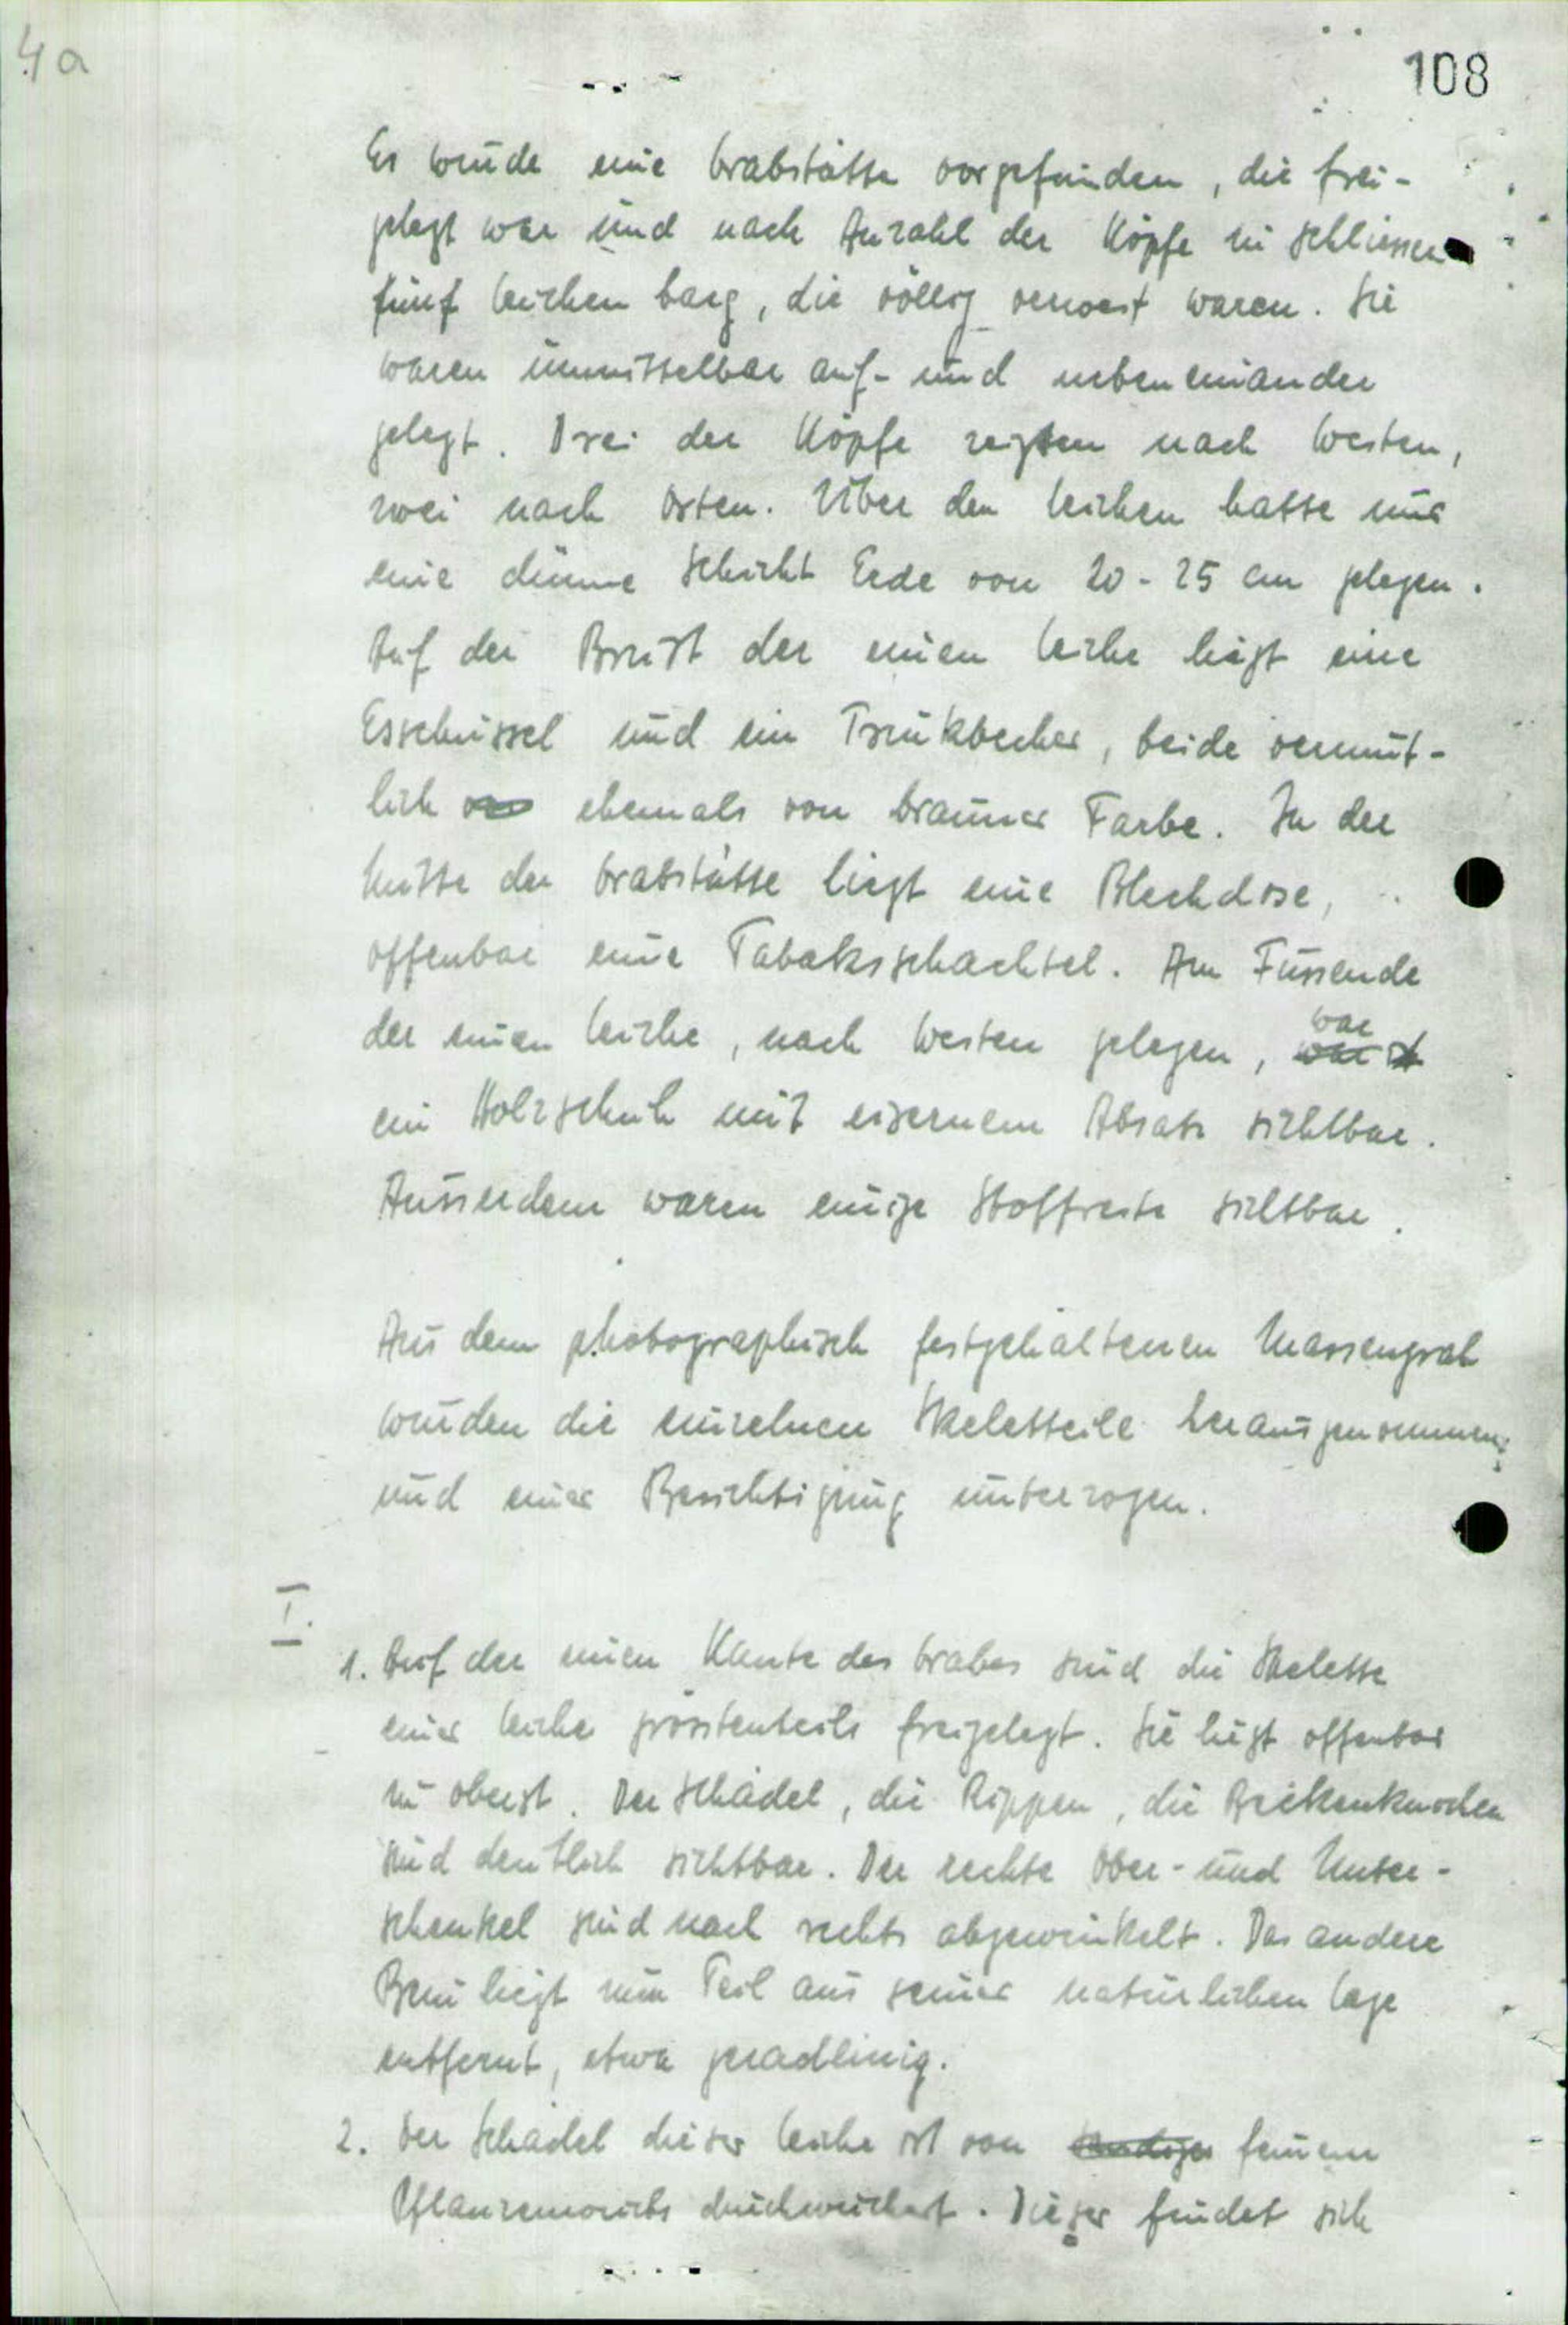 4a
108
Es wurde eine Grabstätte vorgefunden, die frei-
gelegt war und nach Anzahl der Köpfe zu schliessen
fünf Leichen barg, die völlig verwest waren. Sie
waren unmittelbar auf- und nebeneinander
gelegt. Drei der Köpfe zeigten nach Westen,
zwei nach Osten. Über den Leichen hatte nur
eine dünne Schicht Erde von 20-25 cm gelegen.
Auf der Brust der einen Leiche liegt eine
Esschüssel und ein Trinkbecher, beide vermut-
lich ehemals von brauner Farbe. In der
Mitte der Grabstätte liegt eine Blechdose,
offenbar eine Tabaksschachtel. Am Fussende
der einen Leiche, nach Westen gelegen, war
ein Holzschuh mit eisernem Absatz sichtbar.
Ausserdem waren einige Stoffreste sichtbar.
Aus dem photographisch festgehaltenen Massengrab
wurden die einzelnen Skeletteile herausgenommen
und einer Besichtigung unterzogen.
I.
1. Auf der einen Kante des Grabes sind die Skelette
einer Leiche grösstenteils freigelegt. Sie liegt offenbar
zu oberst. Der Schädel, die Rippen, die Beckenknochen
sind deutlich sichtbar. Der rechte Ober- und Unter-
schenkel sind nach rechts abgewinkelt. Das andere
Bein liegt zum Teil aus seiner natürlichen Lage
entfernt, etwa geradlinig.
2. Der Schädel dieser Leiche ist von feinem
Pflanzenwuchs durchwuchert. Dieser findet sich